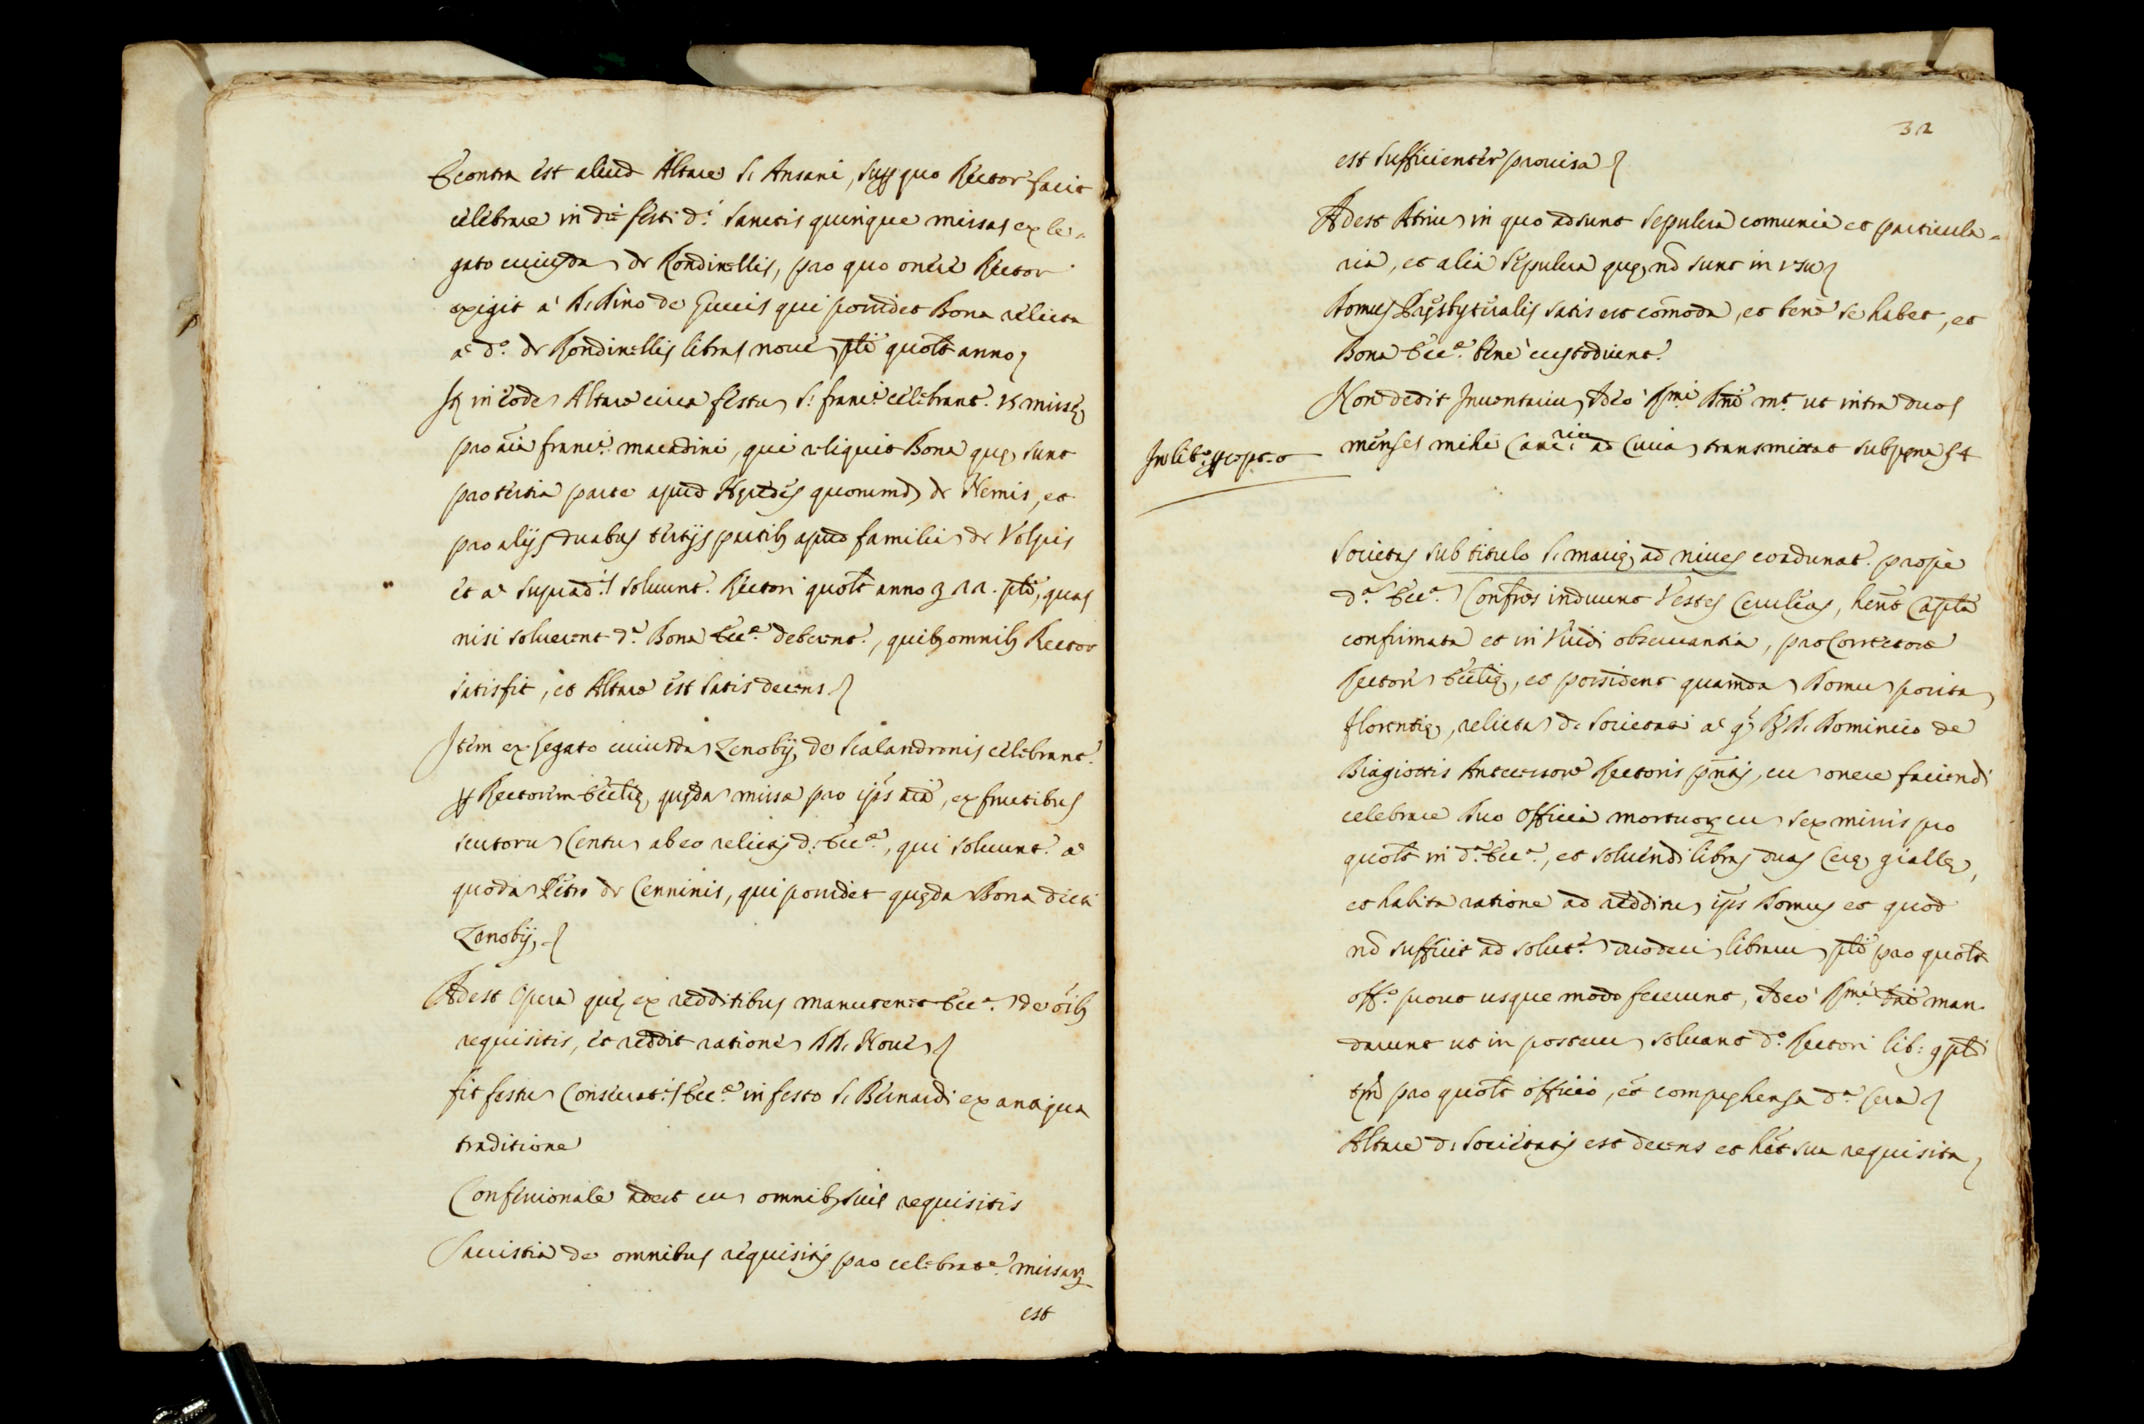 E contra est aliud Altare S. Ansani, supp quo Rector facit
celebrare in die festi d.i Sanctis quinque missas ex le=
gato cuiusda de Rondinellis, pro quo onere Rector
exigit a' D. Dino de Guccis qui possidet Bona relicta
a d.o de Rondinellis libras nove quolt anno
It in eode Altare circa festu S. franc.i celebrant. 15 missę
pro aia franc.i macadini, qui reliquit Bona quę sunt
pro tertia parte apud Hęredes quorumd de Nemis, et
pro alijs duabus tertijs partib apud familia de Volpis
et a suprad.is soluunt. Rectori quolt anno 22. plo, quas
nisi soluerent d.a Bona Ecc.e deberent., quib omnib Rector
satisfit, et Altare est satis decens
Item ex legato cuiusda Zenobij de Scalandronis celebrant.
p Rectorem Ecclię quęda missa pro ips aia, ex fructibus
scutoru Centu ab eo relictis d. Ecc.e, qui soluunt. a
quoda Petro de Cenninis, qui possidet quęda Bona dicti
Zenobij
Adest Opera quę ex redditibus manutenet Ecc.a de oib
requisitis, et reddit ratione DD. Nove
fit festu Consecrat.is Ecc.e in festo S. Bernardi ex antiqua
traditione
Confessionale adest cu omnib suis requisitis
Sacristia de omnibus requisitis pro celebrat.e missar
est
32
est sufficienter provisa
Adest Atriu in quo adsunt sepulcra comunia et particula=
ria, et alia sepulcra quę no sunt in usu
Domus Pręsbyteralis satis est comoda, et bene se habet, et
Bona Ecc.e bene custodiunt.
Non dedit Inventariu Ideo Rmi Dni m.t ut intra duos
menses mihi Canc.rio ad Curia transmittat sub pęna
In lib.o
Societas sub titulo S. Marię ad nives coadunat. prope
d.a Ecc.a Confres induunt Vestes Ceruleas, hent Capla
confirmata et in Viridi observantia, pro Correctore
Rectore Ecclię, et possident quamda Domu posita
florentię, relicta d. Societati a q R. D. Dominico de
Biagiottis Antecessore Rectoris pntis, cu onere faciendi
celebrare duo officia mortuor cu sex missis pro
quolt in d.a Ecc.a, et soluendi libras duas Cerę giallę,
et habita ratione ad redditu ips Domus et quod
no sufficit ad solut.e duodeci libraru plo pro quolt
off.o prout usque modo fecerunt, Ideo Rmi Dni man
darunt ut in posteru soluant d.o Rectori lib: 9 plo
tm pro quolt officio, et compręhensa d.a cera
Altare d. Societatis est decens et het sua requisita